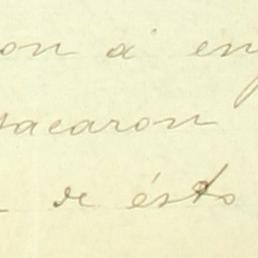 on á en
sacaron
de ésto